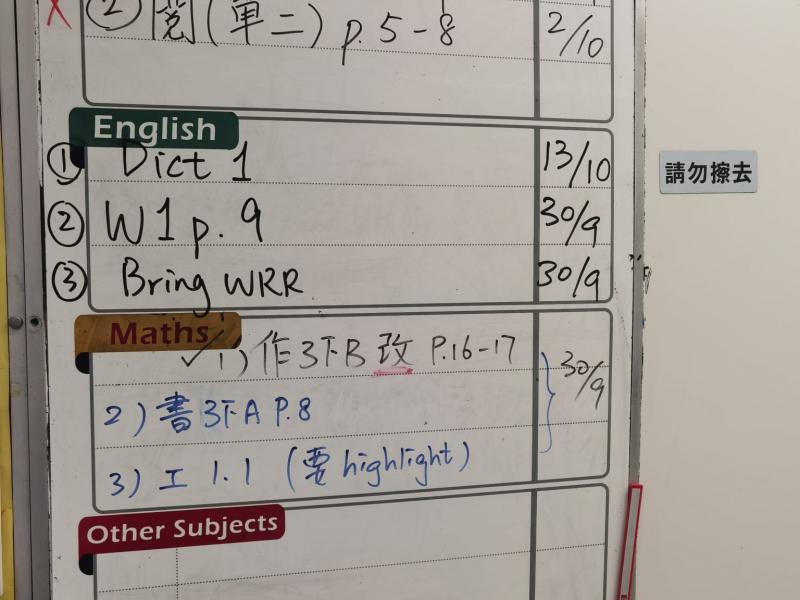 ② 閱(單二) p.5-8 2/10
English
① Dict 1 13/10
② W1 p.9 30/9
③ Bring WRR 30/9
請勿擦去
Maths
✓1) 作3下B 改 P.16-17 30/9
2) 書3下A P.8
3) 工 1.1 (要highlight)
Other Subjects